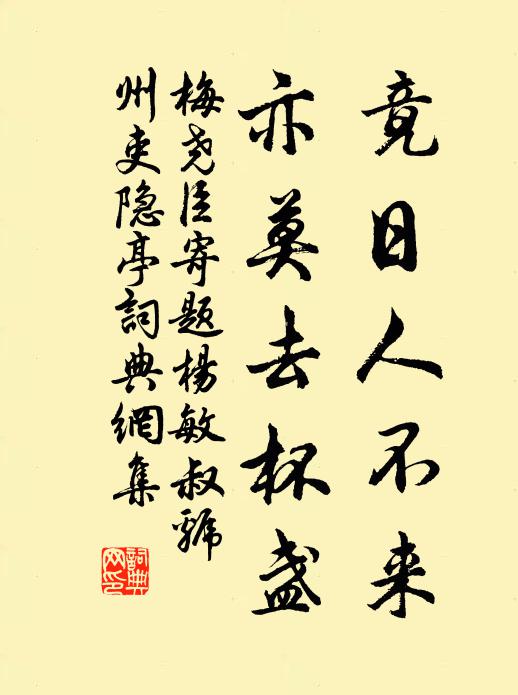 竟日人不来
亦莫去杯盏
梅尧臣寄题杨敏叔虢
州吏隐亭詞典網集
詞典
网印